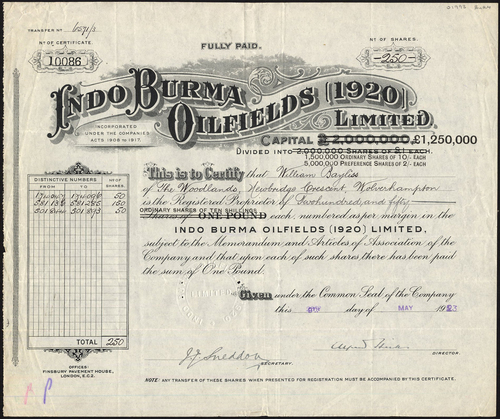 TRANSFER No
No OF CERTIFICATE.
10086
FULLY PAID.
No OF SHARES.
250
INDO BURMA
OILFIELDS (1920)
LIMITED.
INCORPORATED
UNDER THE COMPANIES
ACTS 1908 to 1917.
CAPITAL £2,000,000 £1,250,000
DIVIDED INTO 2,000,000 SHARES OF £1 EACH.
1,500,000 ORDINARY SHARES OF 10/- EACH
5,000,000 PREFERENCE SHARES OF 2/- EACH
This is to Certify that William Bayliss
of The Woodlands, Newbridge Crescent, Wolverhampton
is the Registered Proprietor of Two hundred and fifty
ORDINARY SHARES OF TEN SHILLINGS
Shares of ONE POUND each, numbered as per margin in the
INDO BURMA OILFIELDS (1920) LIMITED,
subject to the Memorandum and Articles of Association of the
Company and that upon each of such shares there has been paid
the sum of One Pound.
Given under the Common Seal of the Company
this day of MAY 1923
DISTINCTIVE NUMBERS
FROM TO
No OF SHARES.
50
150
50
TOTAL 250
OFFICES:
FINSBURY PAVEMENT HOUSE,
LONDON, E.C.2.
J. J. Sneddon
SECRETARY.
DIRECTOR.
NOTE: ANY TRANSFER OF THESE SHARES WHEN PRESENTED FOR REGISTRATION MUST BE ACCOMPANIED BY THIS CERTIFICATE.